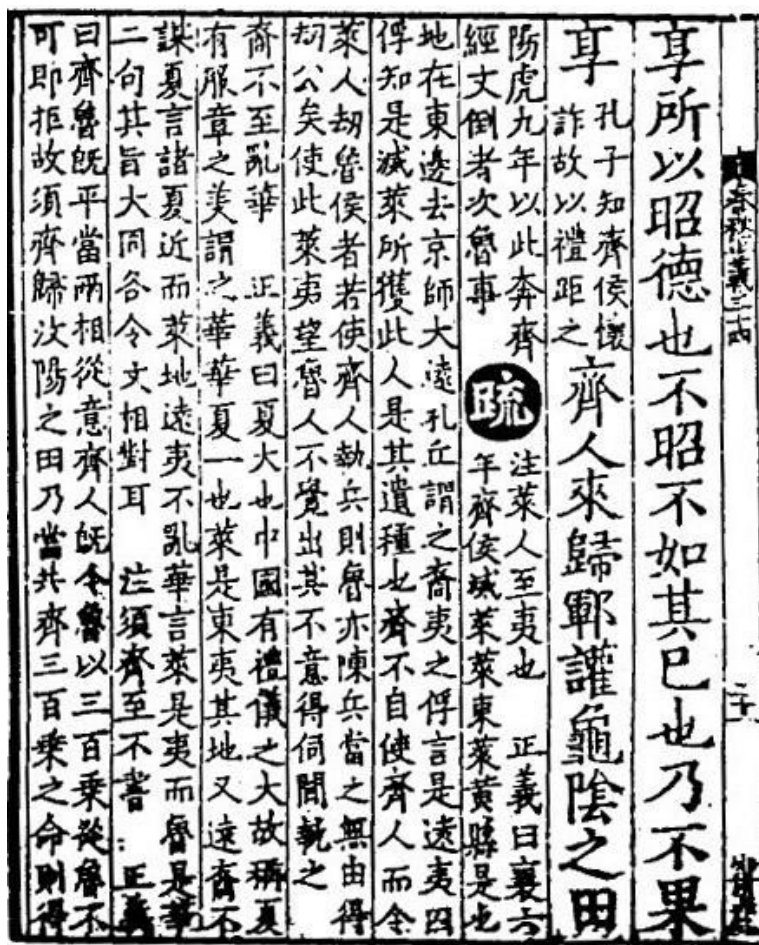 春秋正義三十四
二十
享所以昭德也不昭不如其已也乃不果
享
孔子知齊侯懷
詐故以禮距之
齊人來歸鄆讙龜陰之田
陽虎九年以此奔齊
經文倒者次魯事
疏
注萊人至夷也 正義曰襄六
年齊侯滅萊萊東萊黃縣是也
地在東邊去京師大遠孔丘謂之裔夷之俘言是遠夷囚
俘知是滅萊所獲此人是其遺種也齊不自使齊人而令
萊人劫魯侯者若使齊人執兵則魯亦陳兵當之無由得
劫公矣使此萊夷望魯人不覺出其不意得伺間執之
裔不至亂華 正義曰夏大也中國有禮儀之大故稱夏
有服章之美謂之華華夏一也萊是東夷其地又遠裔不
謀夏言諸夏近而萊地遠夷不亂華言萊是夷而魯是華
二句其旨大同各令文相對耳 注須齊至不書 正義
曰齊魯既平當兩相從意齊人既令魯以三百乘從魯不
可即拒故須齊歸汶陽之田乃當共齊三百乘之命則得